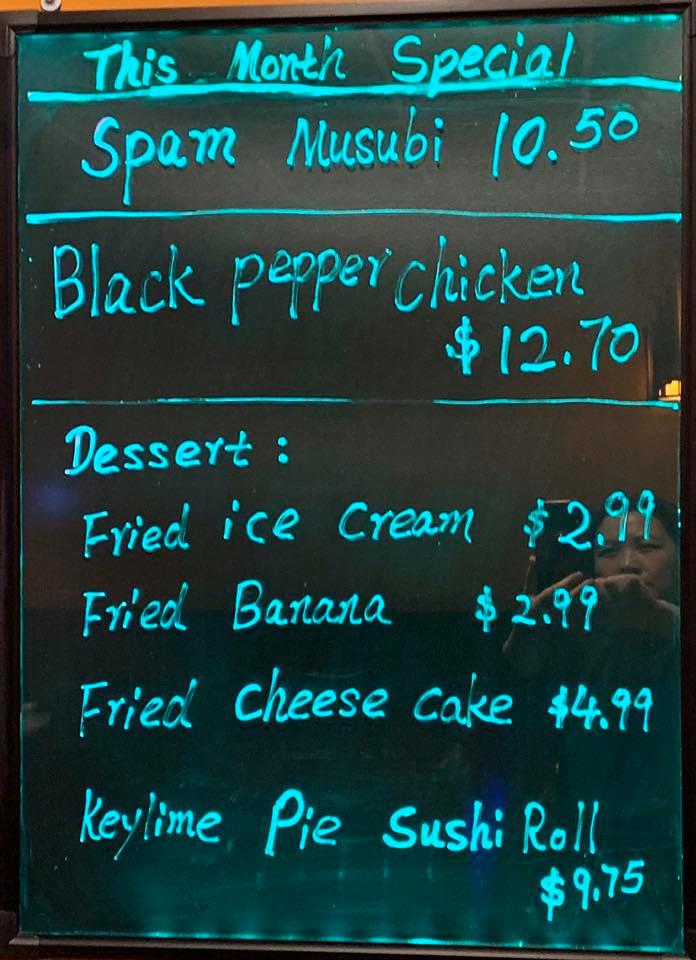 This Month Special
Spam Musubi 10.50
Black pepper chicken
$12.70
Dessert :
Fried ice cream $2.99
Fried Banana $2.99
Fried cheese cake $4.99
Keylime Pie Sushi Roll
$9.75